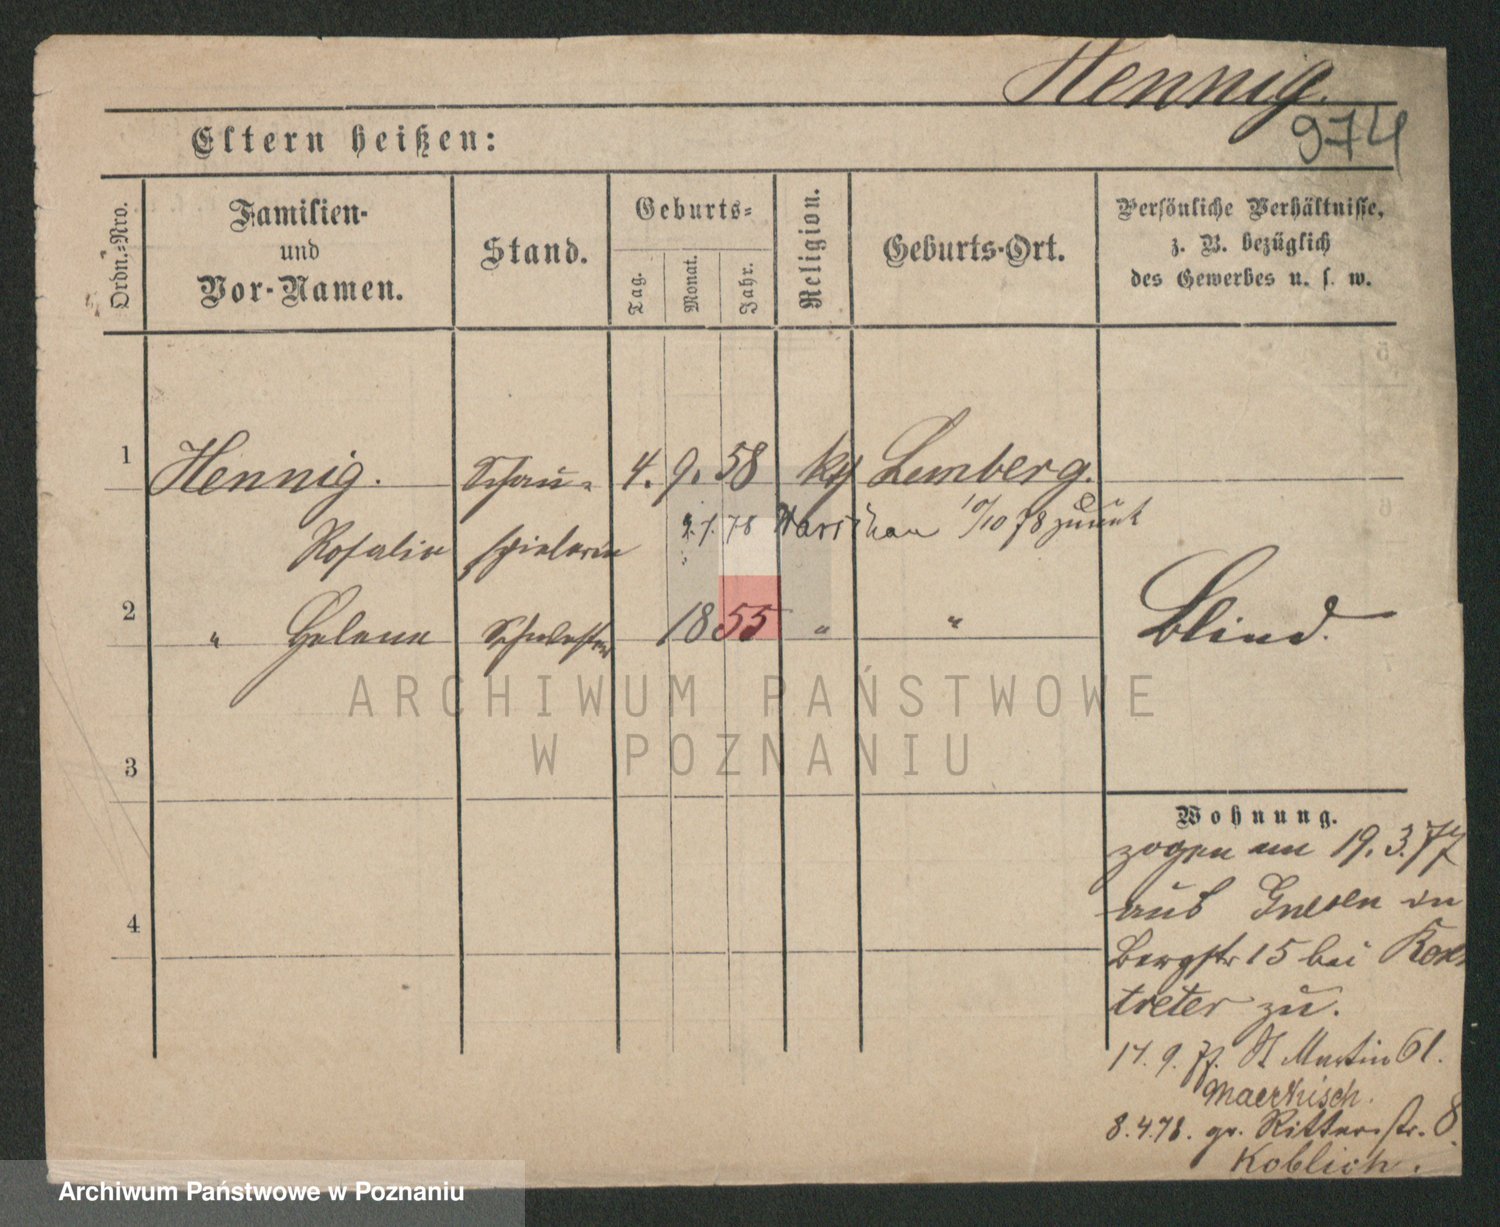 Hennig.
974
Eltern heißen:
Ordn.-Nro.
Familien-
und
Vor-Namen.
Stand.
Geburts-
Tag.
Monat.
Jahr.
Religion.
Geburts-Ort.
Persönliche Verhältnisse,
z. B. bezüglich
des Gewerbes u. s. w.
1 Hennig. Schau- 4. 9. 58 kth Lemberg.
Rosalie spielerin
9.7.78 Warschau 10/10 78 zurück
2 " Helene Schwester 1855 " " Blind.
ARCHIWUM PAŃSTWOWE
W POZNANIU
3
4
Wohnung.
zogen am 19. 3. 77
aus Gnesen in
Bergstr 15 bei
treter zu.
17. 9. 77. St Martin 61.
Maerkisch.
8.4.78. gr. Ritterstr. 8.
Koblich.
Archiwum Państwowe w Poznaniu